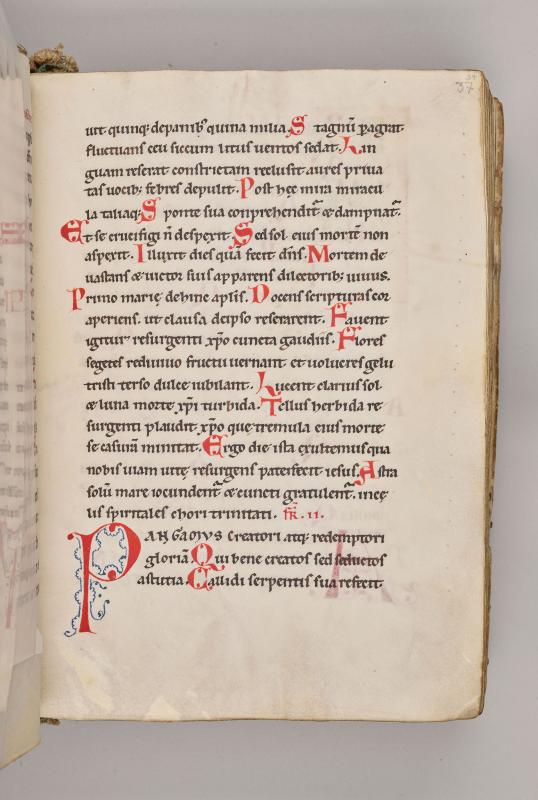 37
uit. quinq; de panib; quina milia. Stagnū ꝑagrat
fluctuans ceu siccum litus uentos sedat. Lin
guam reserat constrictam reclusit aures priua
tas uocib; febres depulit. Post hęc mira miracu
la taliaq; Sponte sua conprehendit̄ & dampnat̄.
Et se crucifigi n̄ despexit. Sed sol eius mortē non
aspexit. Illuxit dies quā fecit dn̄s. Mortem de
uastans & uictor suis apparens dilectorib; uiuus.
Primo marię dehinc apl̄is. Docens scripturas cor
aperiens. ut clausa de ipso reserarent. Fauent
igitur resurgenti xp̄o cuncta gaudiis. Flores
segetes rediuiuo fructu uernant et uolucres gelu
tristi terso dulce iubilant. Lucent clarius sol
& luna morte xp̄i turbida. Tellus herbida re
surgenti plaudit xp̄o quę tremula eius morte
se casurā minitat. Ergo die ista exultemus qua
nobis uiam uitę resurgens patefecit iesus. Astra
solū mare iocundent̄ & cuncti gratulent̄. in cę
lis spiritales chori trinitati. fr̄. II.
PANGAMUS creatori atq; redemptori
gloriā. Qui bene creatos sed seductos
astutia. Callidi serpentis sua refecit